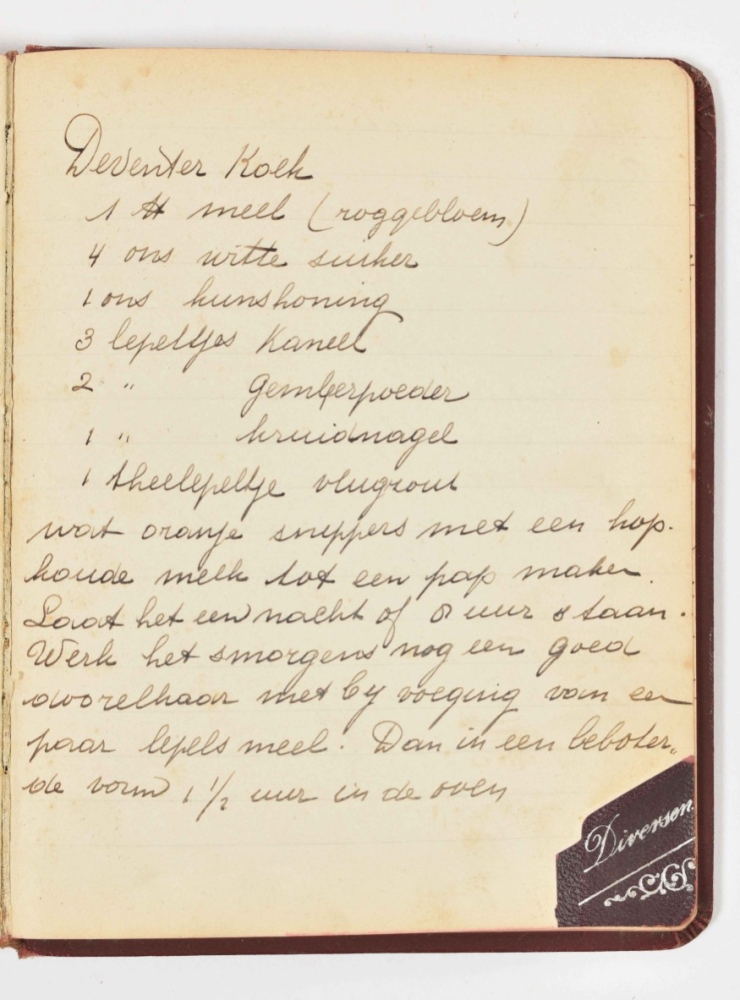 Deventer Koek
1 ℔ meel (roggebloem)
4 ons witte suiker
1 ons kunshoning
3 lepeltjes Kaneel
2 " Gemberpoeder
1 " kruidnagel
1 theelepeltje vlugzout
wat oranje snippers met een kop.
koude melk tot een pap maken.
Laat het een nacht of 8 uur staan.
Werk het smorgens nog een goed
doorelkaar met by voeging van een
paar lepels meel. Dan in een beboter„
de vorm 1 1/2 uur in de oven
Diversen